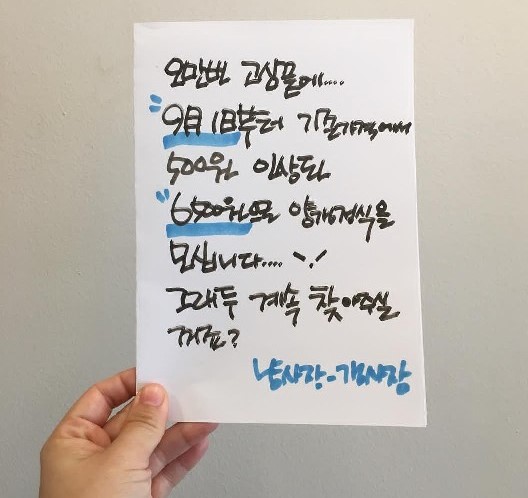 오만번 고심끝에....
"9月 1日부터 기존가격에서
500원 인상된
"6500원으로 정식을
모십니다....
그래두 계속 찾아주실
꺼죠?
냥사장-김사장